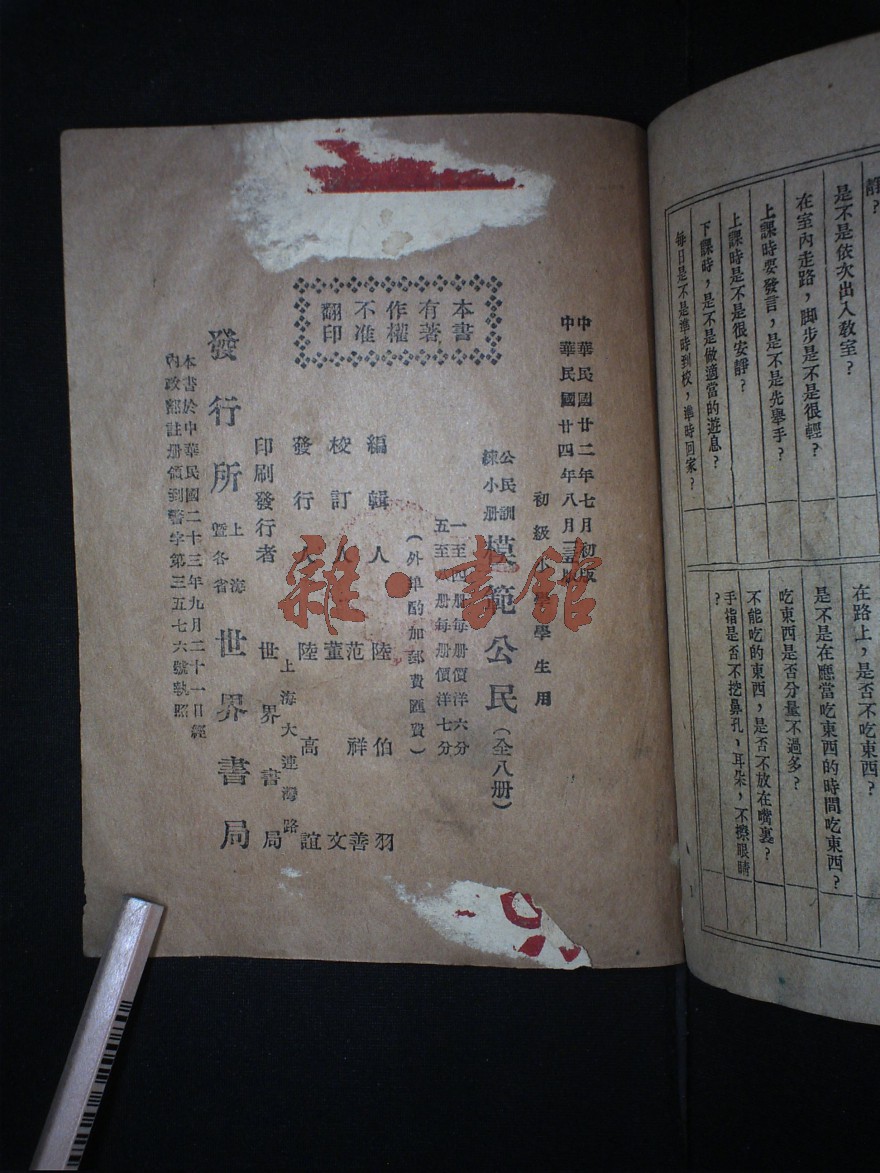 靜?
是不是依次出入教室?
在室內走路,脚步是不是很輕?
上課時要發言,是不是先舉手?
上課時是不是很安靜?
下課時,是不是做適當的遊息?
每日是不是準時到校,準時回家?
在路上,是否不吃東西?
是不是在應當吃東西的時間吃東西?
吃東西是否分量不過多?
不能吃的東西,是否不放在嘴裏?
手指是否不挖鼻孔,耳朵,不擦眼睛
?
中華民國廿二年七月初版
中華民國廿四年八月
初級小學學生用
公民訓
練小册
模範公民(全八册)
一至四册每册價洋六分
五至八册每册價洋七分
(外埠酌加郵費匯費)
本書
有著
作權
不准
翻印
編輯人 陸伯羽
校訂人 范祥善
董文
發行人 陸高誼
上海大連灣路
印刷發行者 世界書局
發行所 上海 世界書局
暨各省
本書於中華民國二十三年九月二十一日經
內政部註册領到警字第三五七六號執照
雜·書館